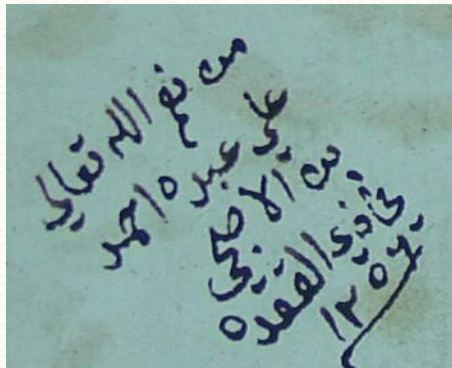 من نعم الله تعالى
علي عبده احمد
بن الاصبحي
في ذي القعده